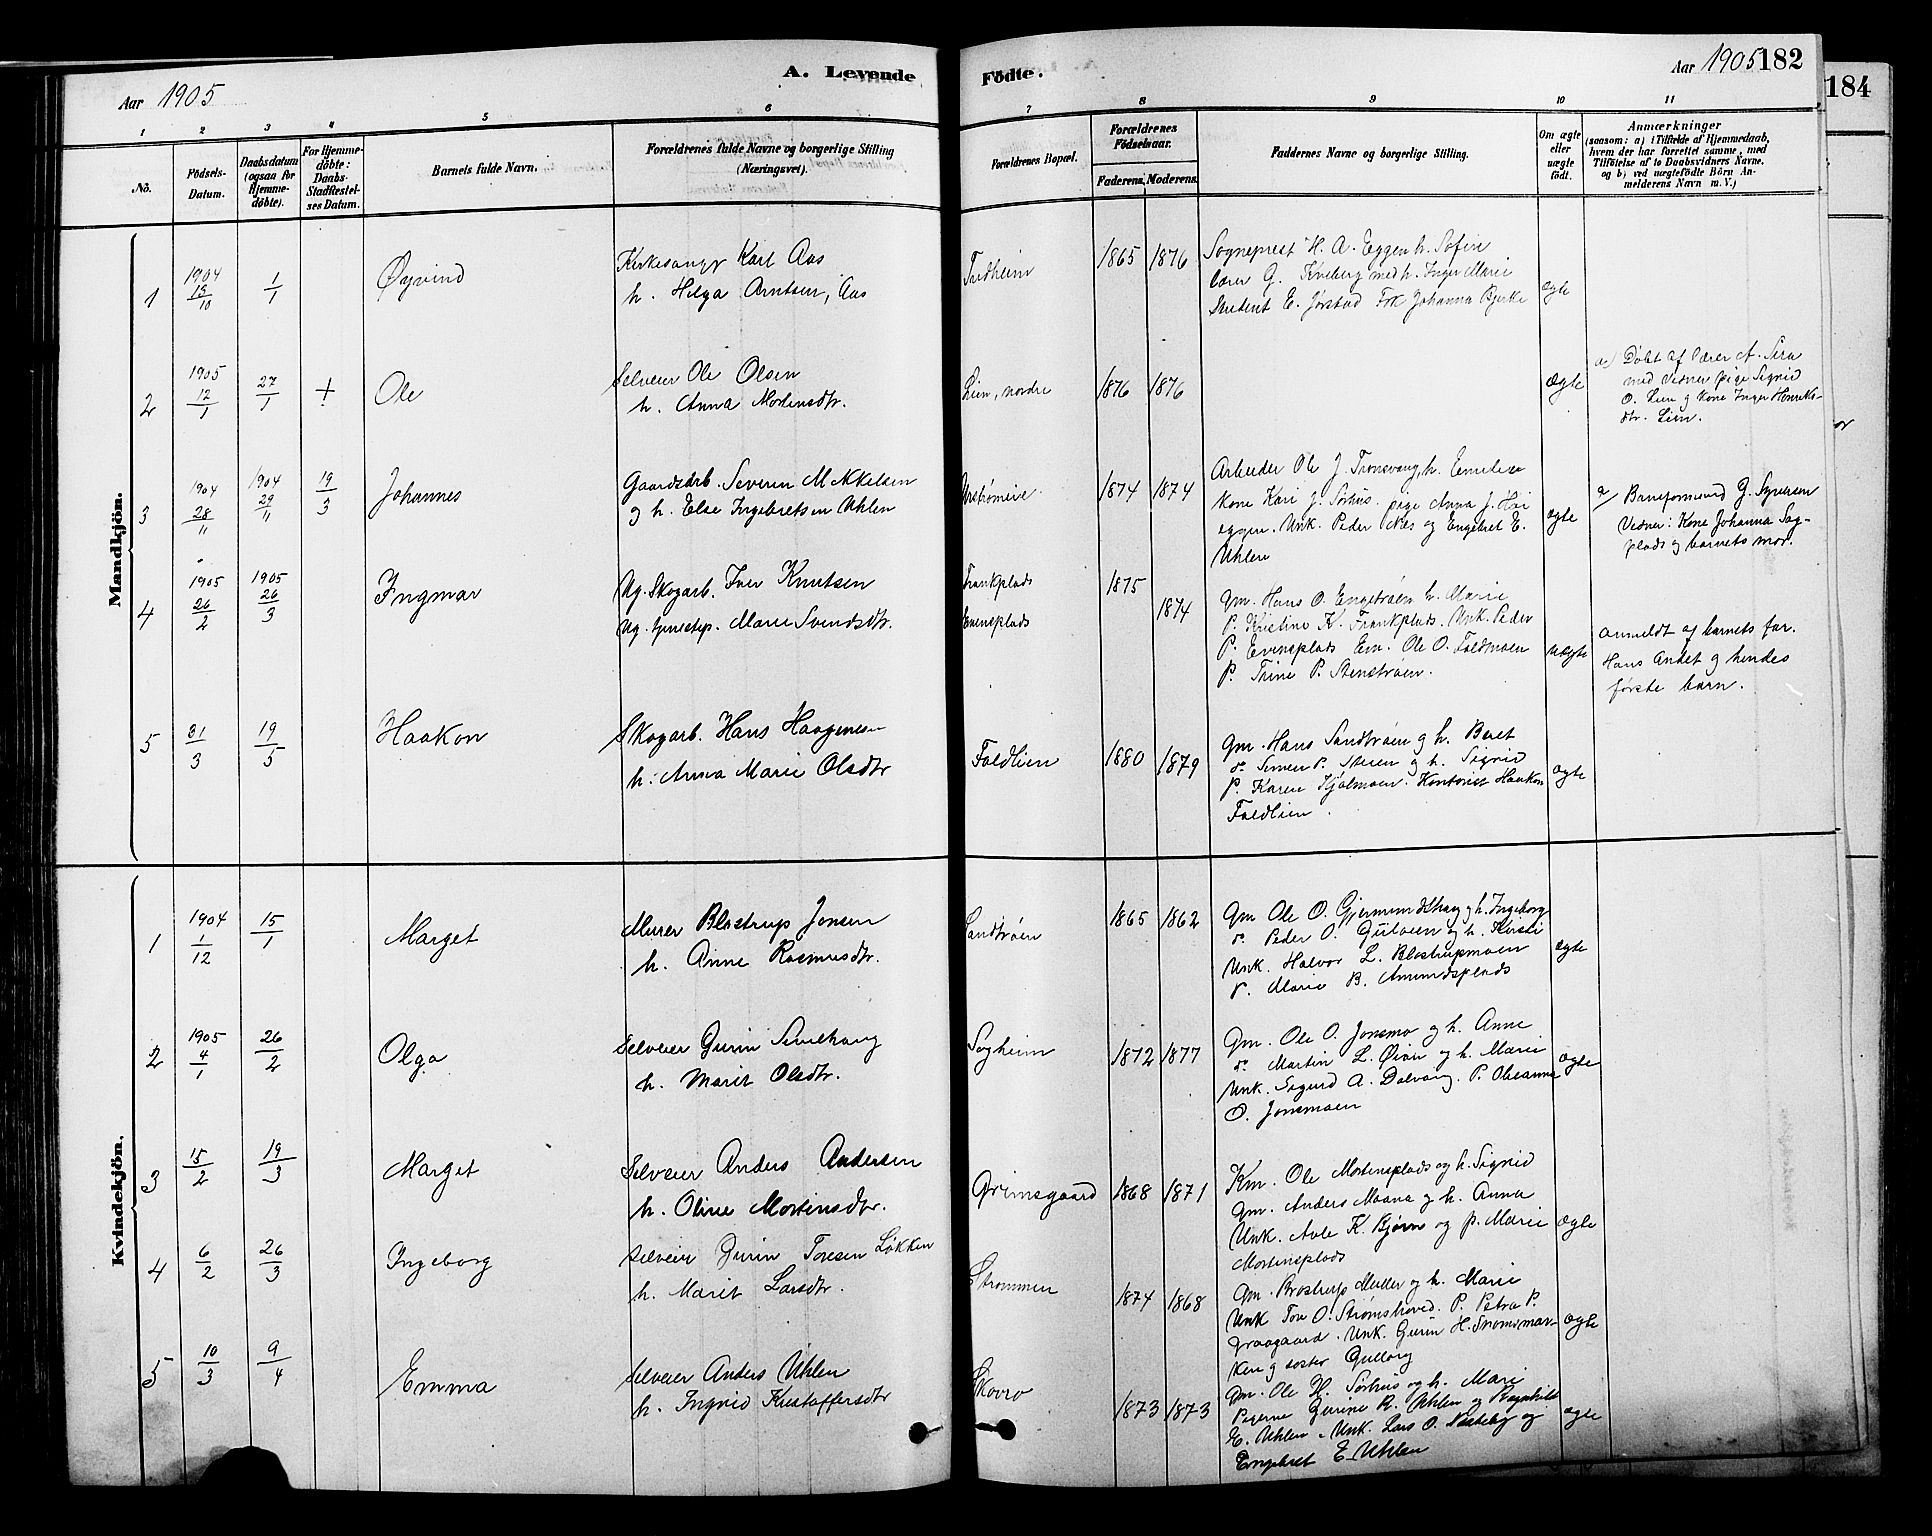 A. Levende Födte.
Aar 1905
Aar 1905 182
184
1 2 3 4 5 6 7 8 9 10 11
No.
Födsels-Datum.
Daabsdatum (ogsaa for Hjemme-döbte).
For Hjemme-döbte: Daabs-Stadfæstel-ses Datum.
Barnets fulde Navn.
Forældrenes fulde Navne og borgerlige Stilling (Næringsvei).
Forældrenes Bopæl.
Forældrenes Födselsaar.
Faderens. Moderens.
Faddernes Navne og borgerlige Stilling.
Om ægte eller uægte födt.
Anmærkninger
(saasom: a) i Tilfælde af Hjemmedaab, hvem der har forrettet samme, med Tilföielse af to Daabsvidners Navne, og b) ved uægtefödte Börn Anmelderens Navn m. V.)
Mandkjön.
1 1904 19/10 1/1 Øyvind
Kirkesanger Karl Aas
h. Helga Arntsen, Aas
1865 1876
Sogneprest H. A. Eggen h. Sofie
lærer G. Kveberg med h. Inger Marie
Student E. Jørstad Frk Johanna Bjerke
ægte
2 1905 12/1 27/1 + Ole
Selveier Ole Olsen
h. Anna Mortensdtr.
Lien, nordre
1876 1876
ægte
a) Døbt af lærer A.
med Vidner pige Sigrid
O. Lien g Kone Inger Henriks-
dtr. Lien.
3 1904 28/11 1904 29/11 19/3 Johannes
Gaardsarb. Severin Mikkelsen
g h. Else Ingebretsen Uhlen
1874 1874
Arbeider Ole J. Tronsvang, h. Emelie
Kone Kari J. Sørhus. pige Anna J. Høi
eggen. Unk. Peder Næs og Engebret E.
Uhlen
ægte
a/ Barnejomfrud J. Syversen
Vidner: Kone Johanna Sag-
plads g barnets mor.
4 1905 26/2 1905 26/3 Ingmar
Ug. Skogarb. Iver Knutsen
Ug. Marie Svendsdtr.
Trankplads
Evensplads
1875
1874
Gm. Hans O. Engetrøen h. Marie
P. Kristine K. Trankplads. Unk. Peder
P. Evensplads Em. Ole O. Foldmoen
P. Trine P. Stenstrøen.
uægte
anmeldt af barnets far.
Hans andet g hendes
første barn.
5 31/3 19/5 Haakon
Skogarb. Hans Haagensen
h. Anna Marie Olsdtr
Foldlien
1880 1879
Gm. Hans Sandtrøen g h. Beret
d. Simen P. Steien g h. Sigrid
P. Karen Kjølmoen. Kontorist Haakon
Foldlien.
ægte
Kvindekjön.
1 1904 1/12 15/1 Marget
Murer Blostrup Jonsen
h. Anne Rasmusdtr.
Sandtrøen
1865 1862
Gm Ole O. Gjermundshaug g h. Ingeborg
d. Peder O. g h. Kirsti
Unk. Halvor L. Blostrupmoen
P. Marie B. Amundsplads
ægte
2 1905 4/1 26/2 Olga
Selveier Gurin
h. Marit Olsdtr.
Søgheim
1872 1877
Gm. Ole O. Jonsmo g h. Anne
d. Martin L. Øien g h. Marie
Unk. Sigurd A. Dalvang. P. Oleanna
O. Jonsmoen
ægte
3 15/2 19/3 Marget
Selveier Anders Andersen
h. Oline Mortensdtr.
Grimsgaard
1868 1871
Km. Ole Mortensplads og h. Sigrid
Gm. Anders Moana g h. Anna
Unk. Avle K. Bjørn og p. Marie
Mortensplads
ægte
4 6/2 26/3 Ingeborg
Selveier Gurin Toresen Løkken
h. Marit Larsdtr.
Strømmen
1874 1868
Gm. Brostrup Møller g h. Marie
Unk Tore O. Strømshoved. P. Petra P.
Graagaard. Unk. Gurin H. Strømsmar-
ken g søster Gullaug
ægte
5 10/3 9/4 Emma
Selveier Anders Uhlen
h. Ingrid Kristoffersdtr
Skovro
1873 1873
Gm. Ole H. Sørhus og h. Marie
Pigerne Gurine R. Uhlen g Ragnhild
E. Uhlen. Unk. Lars O. Nesteby og
Engebret E. Uhlen
ægte